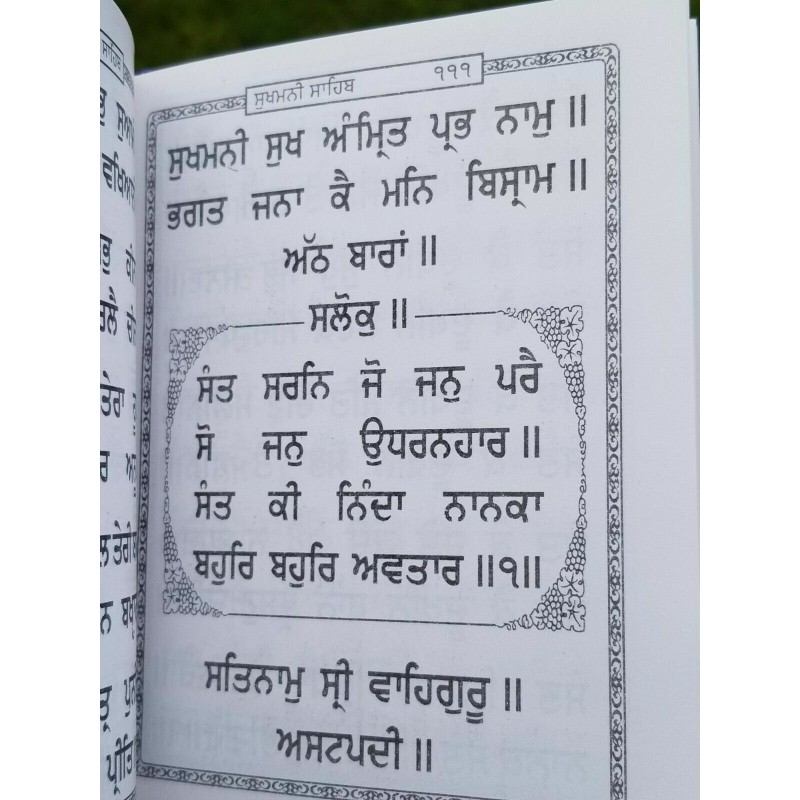 ਸੁਖਮਨੀ ਸਾਹਿਬ ੧੧੧
ਸੁਖਮਨੀ ਸੁਖ ਅੰਮ੍ਰਿਤ ਪ੍ਰਭ ਨਾਮੁ ॥
ਭਗਤ ਜਨਾ ਕੈ ਮਨਿ ਬਿਸ੍ਰਾਮ ॥
ਅੱਠ ਬਾਰਾਂ ॥
ਸਲੋਕੁ ॥
ਸੰਤ ਸਰਨਿ ਜੋ ਜਨੁ ਪਰੈ
ਸੋ ਜਨੁ ਉਧਰਨਹਾਰ ॥
ਸੰਤ ਕੀ ਨਿੰਦਾ ਨਾਨਕਾ
ਬਹੁਰਿ ਬਹੁਰਿ ਅਵਤਾਰ ॥੧॥
ਸਤਿਨਾਮੁ ਸ੍ਰੀ ਵਾਹਿਗੁਰੂ ॥
ਅਸਟਪਦੀ ॥